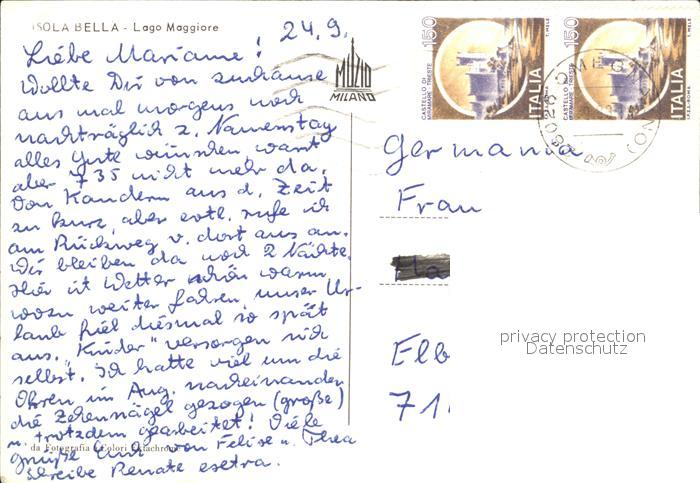 ISOLA BELLA - Lago Maggiore
24.9.
Liebe Mariane!
Wollte Dir von zuhause
aus mal morgens noch
nachträglich z. Namenstag
alles Gute wünschen warst
aber 7 35 nicht mehr da.
Von Kandern aus d. Zeit
zu kurz, aber evtl. rufe ich
am Rückweg v. dort aus an.
Wir bleiben da noch 2 Nächte.
Hier ist Wetter schön warm
weiter fahren, unser Ur-
laub fiel diesmal so spät
aus. "Kinder" versorgen sich
selbst. Ich hatte viel um die
Ohren im Aug. nacheinander
die Zehennägel gezogen (große)
u. trotzdem gearbeitet! Viele
Grüße von Felise u. Thea
schreibe Renate extra.
da Fotografia Colori Ektachrome
MUZIO
MILANO
150
CASTELLO DI
MIRAMARE TRIESTE
ITALIA
T. MELE
150
CASTELLO DI
MIRAMARE TRIESTE
ITALIA
T. MELE
I.P.Z.S. ROMA
28026 OMEGNA (NO)
Germania
Frau
Elb
71
privacy protection
Datenschutz